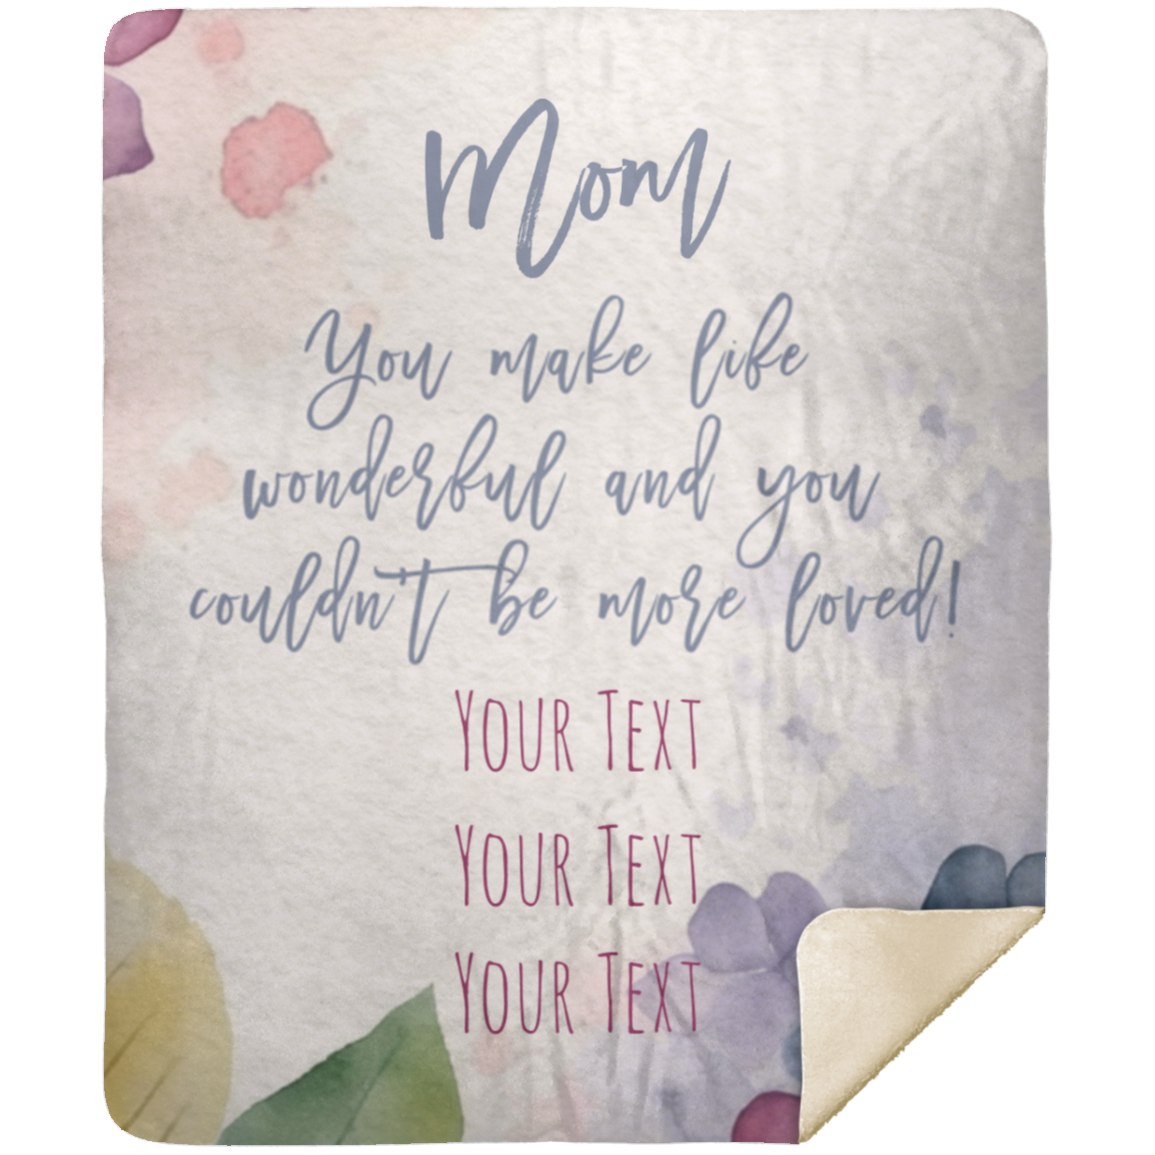 Mom
You make life
wonderful and you
couldn't be more loved!
Your Text
Your Text
Your Text